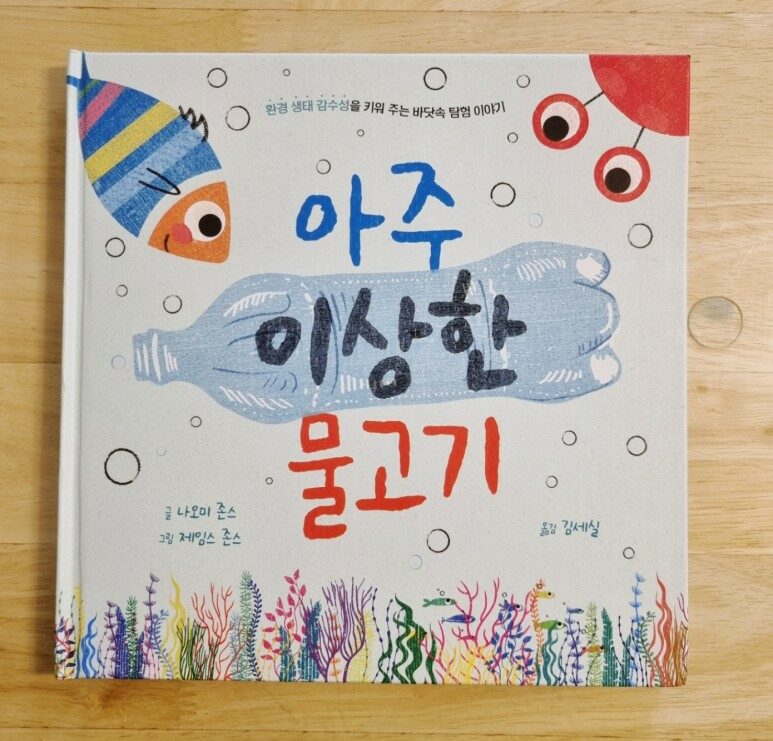 환경 생태 감수성을 키워 주는 바닷속 탐험 이야기
아주
이상한
물고기
글 나오미 존스
그림 제임스 존스
옮김 김세실